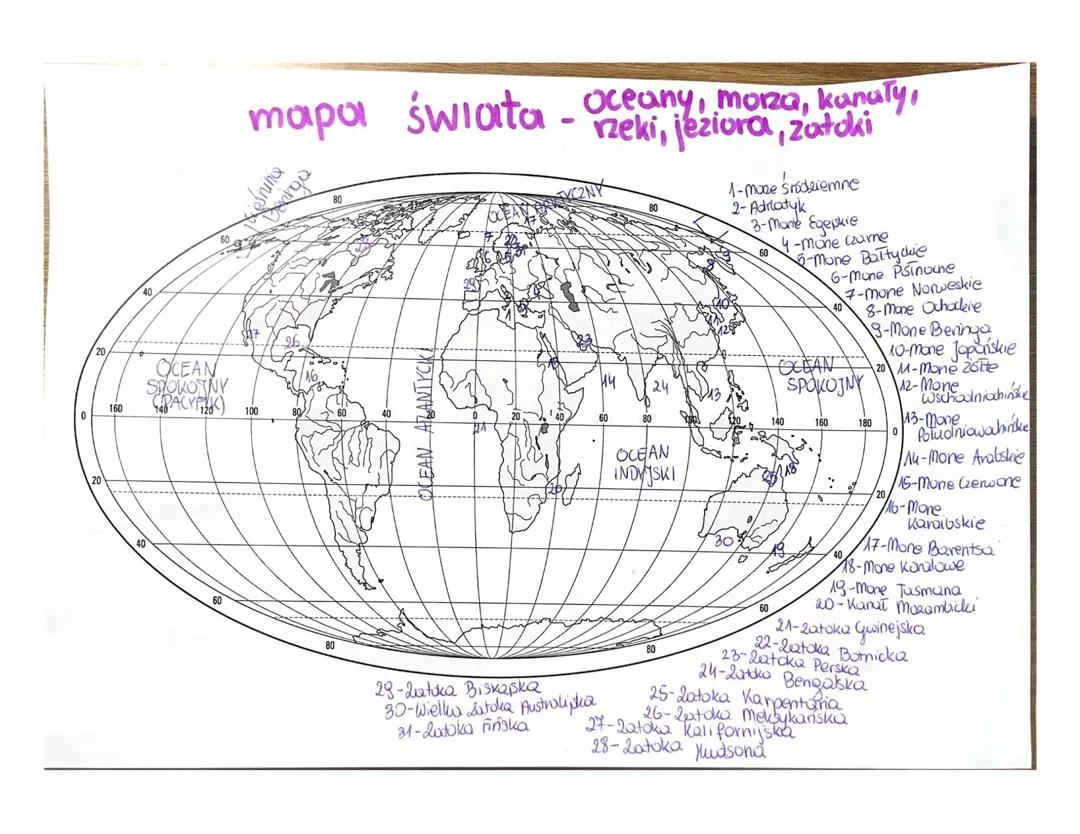 mapa świata - oceany, morza, kanały,
rzeki, jeziora, zatoki
Cieśnina
Beringa
OCEAN ARKTYCZNY
80
80
60
60
40
40
20
20
0
160
140
120
100
80
60
40
20
0
20
40
60
80
100
120
140
160
180
0
20
20
40
40
60
60
80
80
OCEAN
SPOKOJNY
(PACYFIK)
OCEAN ATLANTYCKI
OCEAN
INDYJSKI
OCEAN
SPOKOJNY
17
7
22
31
6
5
28
29
4
1
2
3
8
9
10
11
12
27
26
16
23
15
14
24
13
21
20
25
18
30
19
1-Morze śródziemne
2-Adriatyk
3-Morze Egejskie
4-Morze Czarne
5-Morze Bałtyckie
6-Morze Północne
7-Morze Norweskie
8-Morze Ochockie
9-Morze Beringa
10-Morze Japońskie
11-Morze Żółte
12-Morze
Wschodniochińskie
13-Morze
Południowochińskie
14-Morze Arabskie
15-Morze Czerwone
16-Morze
Karaibskie
17-Morze Barentsa
18-Morze Koralowe
19-Morze Tasmana
20-Kanał Mozambicki
21-Zatoka Gwinejska
22-Zatoka Botnicka
23-Zatoka Perska
24-Zatoka Bengalska
25-Zatoka Karpentaria
26-Zatoka Meksykańska
27-Zatoka Kalifornijska
28-Zatoka Hudsona
29-Zatoka Biskajska
30-Wielka Zatoka Australijska
31-Zatoka Fińska